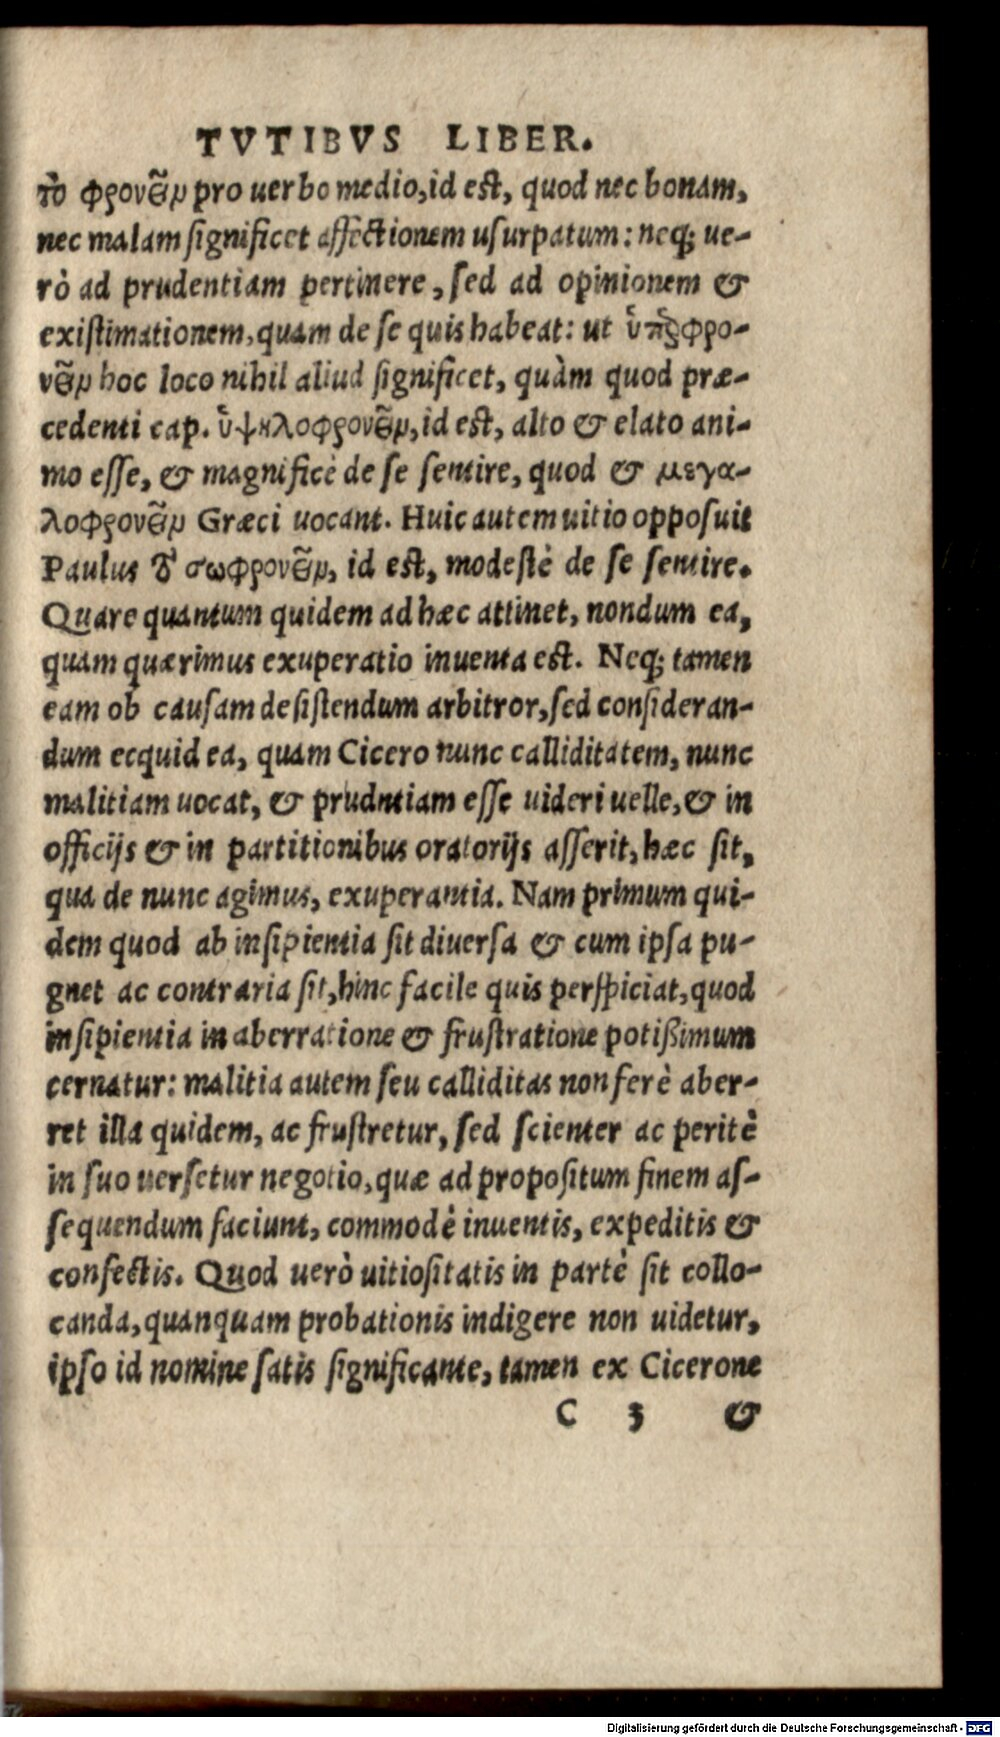 TVTIBVS LIBER.
τὸ φρονεῖν pro uerbo medio, id est, quod nec bonam,
nec malam significet affectionem usurpatum: neq; ue-
rò ad prudentiam pertinere, sed ad opinionem &
existimationem, quam de se quis habeat: ut ὑπερφρο-
νεῖν hoc loco nihil aliud significet, quàm quod præ-
cedenti cap. ὑψηλοφρονεῖν, id est, alto & elato ani-
mo esse, & magnificè de se sentire, quod & μεγα-
λοφρονεῖν Græci uocant. Huic autem uitio opposuit
Paulus τὸ σωφρονεῖν, id est, modestè de se sentire.
Quare quantum quidem ad hæc attinet, nondum ea,
quam quærimus exuperatio inuenta est. Neq; tamen
eam ob causam desistendum arbitror, sed consideran-
dum ecquid ea, quam Cicero nunc calliditatem, nunc
malitiam uocat, & prudntiam esse uideri uelle, & in
officijs & in partitionibus oratorijs asserit, hæc sit,
qua de nunc agimus, exuperantia. Nam primum qui-
dem quod ab insipientia sit diuersa & cum ipsa pu-
gnet ac contraria sit, hinc facile quis perspiciat, quod
insipientia in aberratione & frustratione potißimum
cernatur: malitia autem seu calliditas non ferè aber-
ret illa quidem, ac frustretur, sed scienter ac peritè
in suo uersetur negotio, quæ ad propositum finem as-
sequendum faciunt, commodè inuentis, expeditis &
confectis. Quod uerò uitiositatis in partè sit collo-
canda, quanquam probationis indigere non uidetur,
ipso id nomine satis significante, tamen ex Cicerone
C 3 &
Digitalisierung gefördert durch die Deutsche Forschungsgemeinschaft - DFG